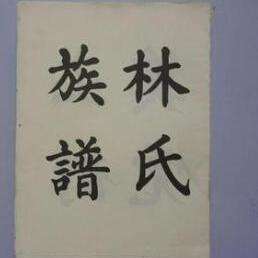 林氏
族譜